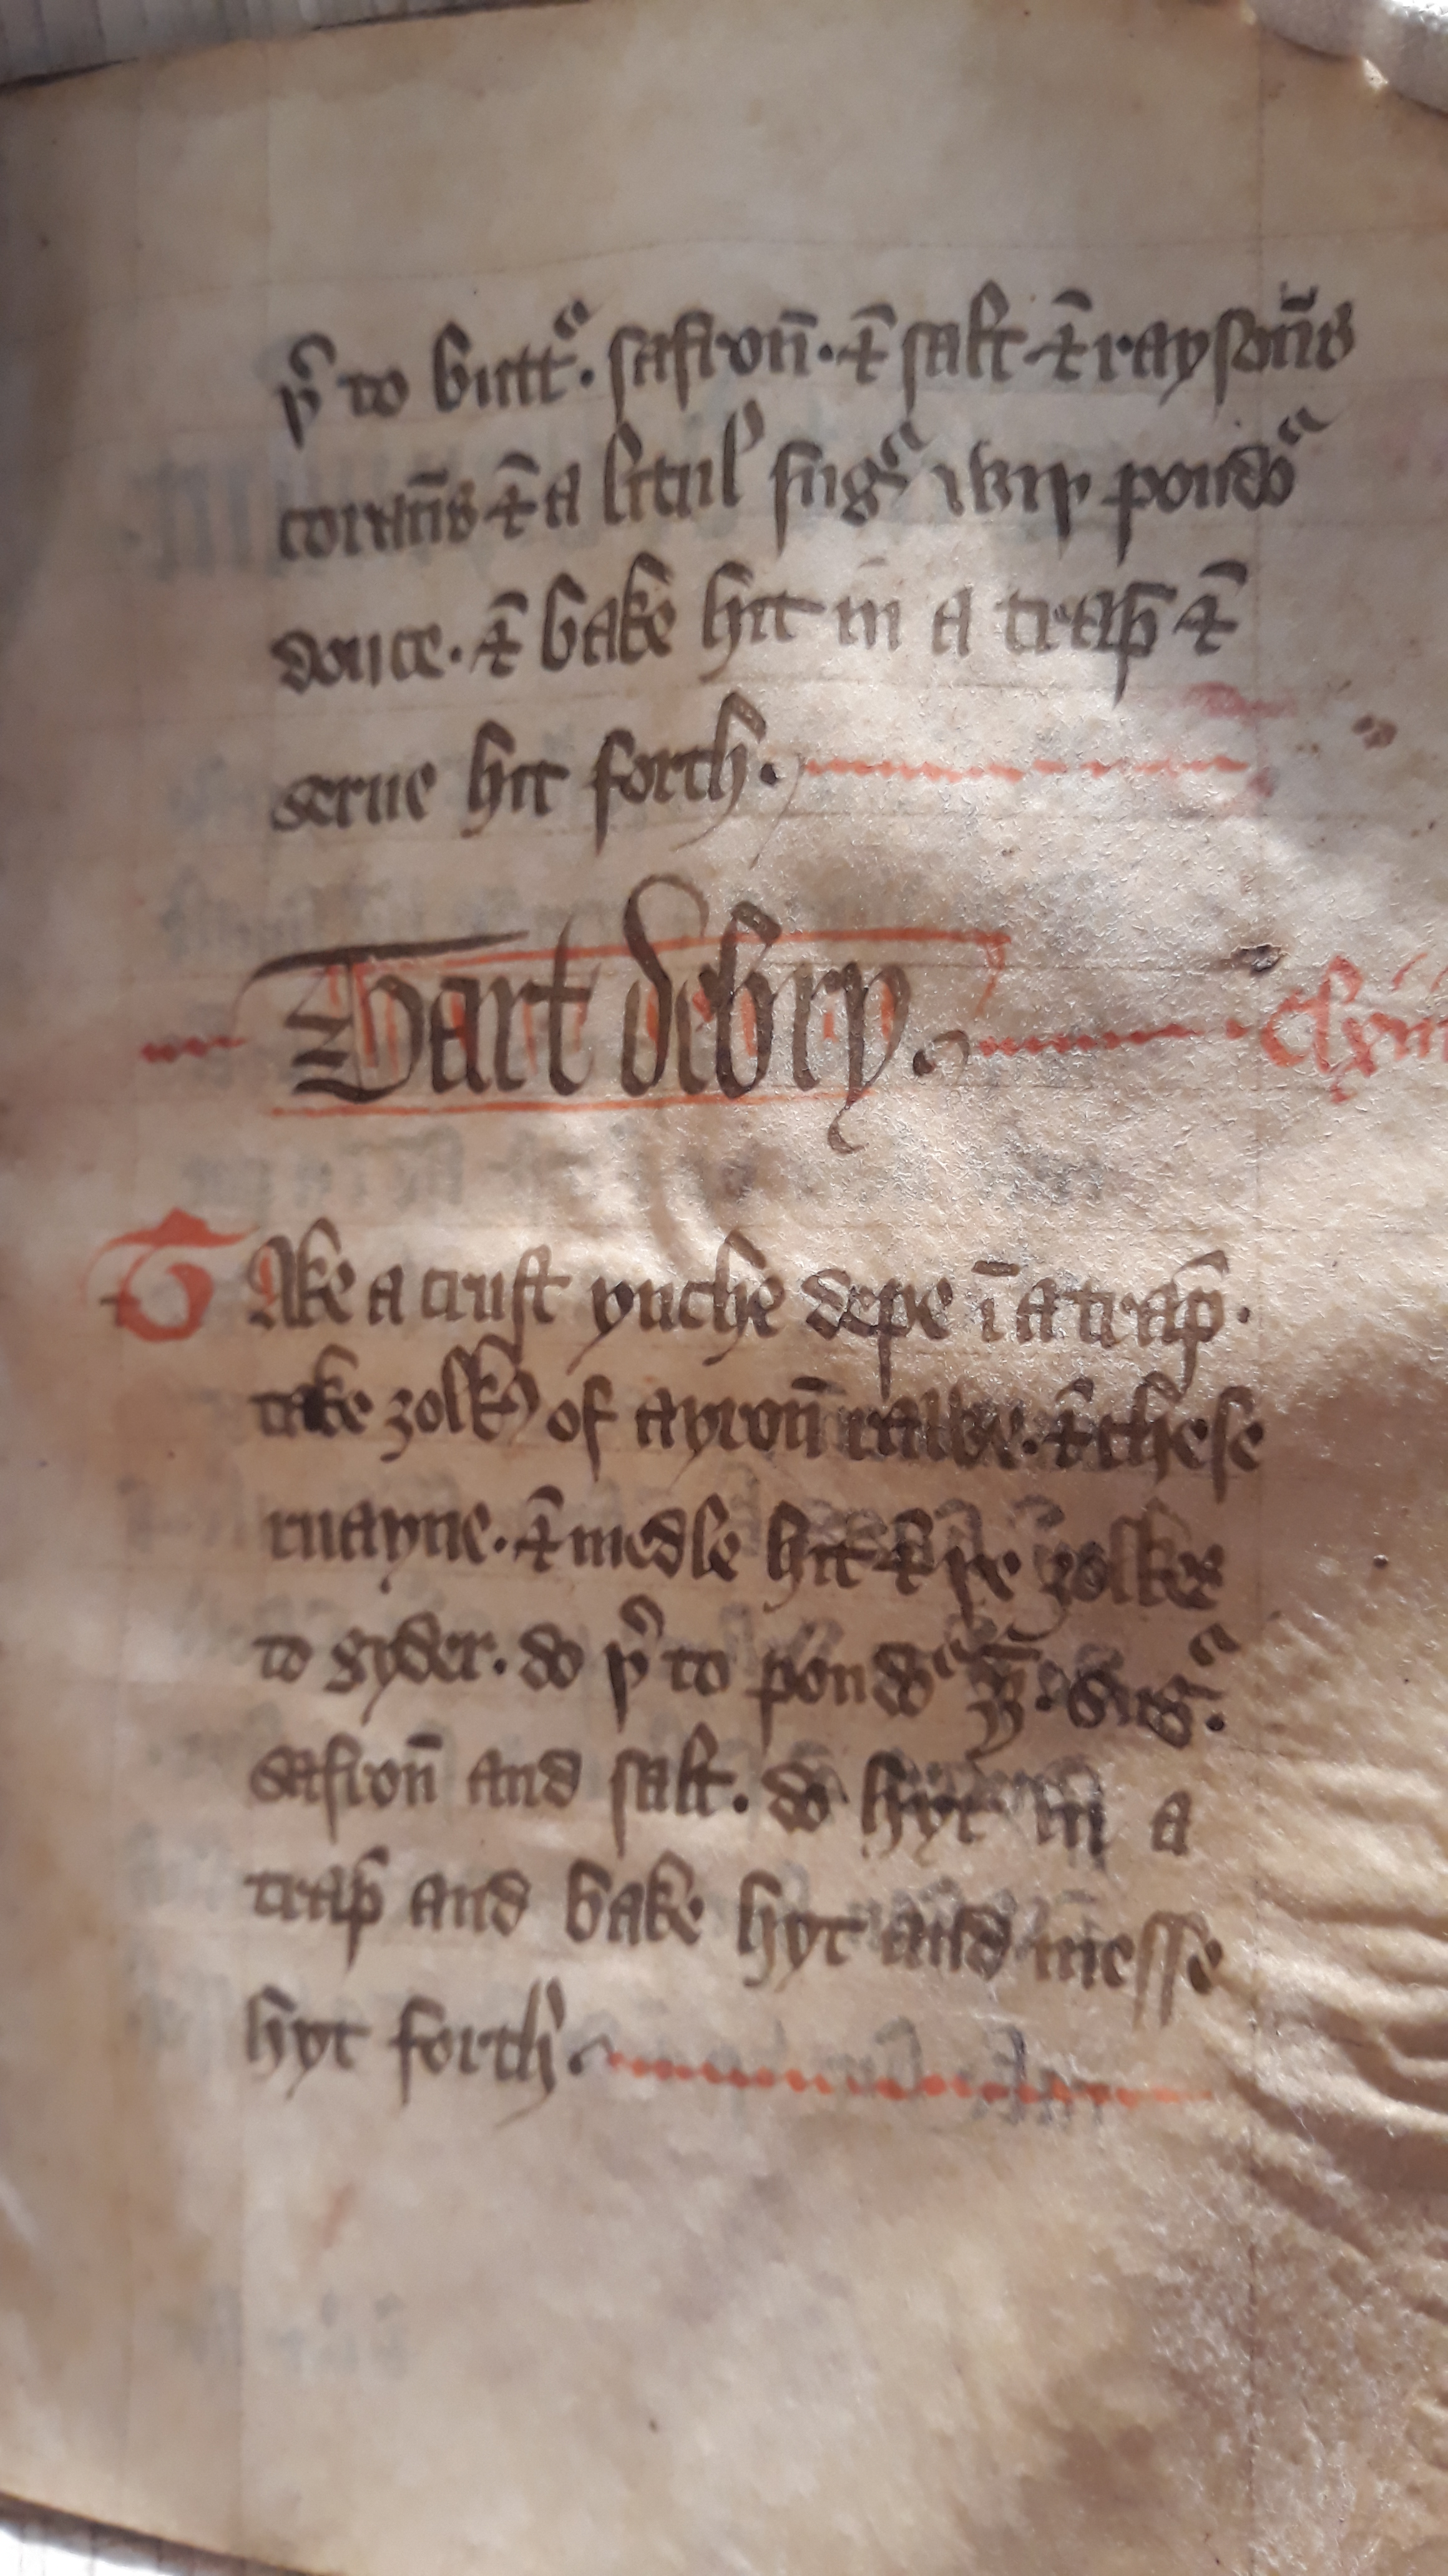 þͬ to butt᷑. safron̄. ⁊ salt ⁊ rayson̄s
coran̄s ⁊ a litul sug᷑ wiþ poudo᷑
douce. ⁊ bake hit in a trap̄ ⁊
serue hit forth.
Tart de bry. Clxiii
Take a crust ynche depe ī a trap̄.
take ȝolkꝭ of ayron̄ rawe. ⁊ chese
ruayne. ⁊ medle hit ⁊ þe ȝolkes
to gyder. do þͬ to poudo᷑ . sug᷑.
safron̄ and salt. do hyt in a
trap̄ and bake hyt and messe
hyt forth.